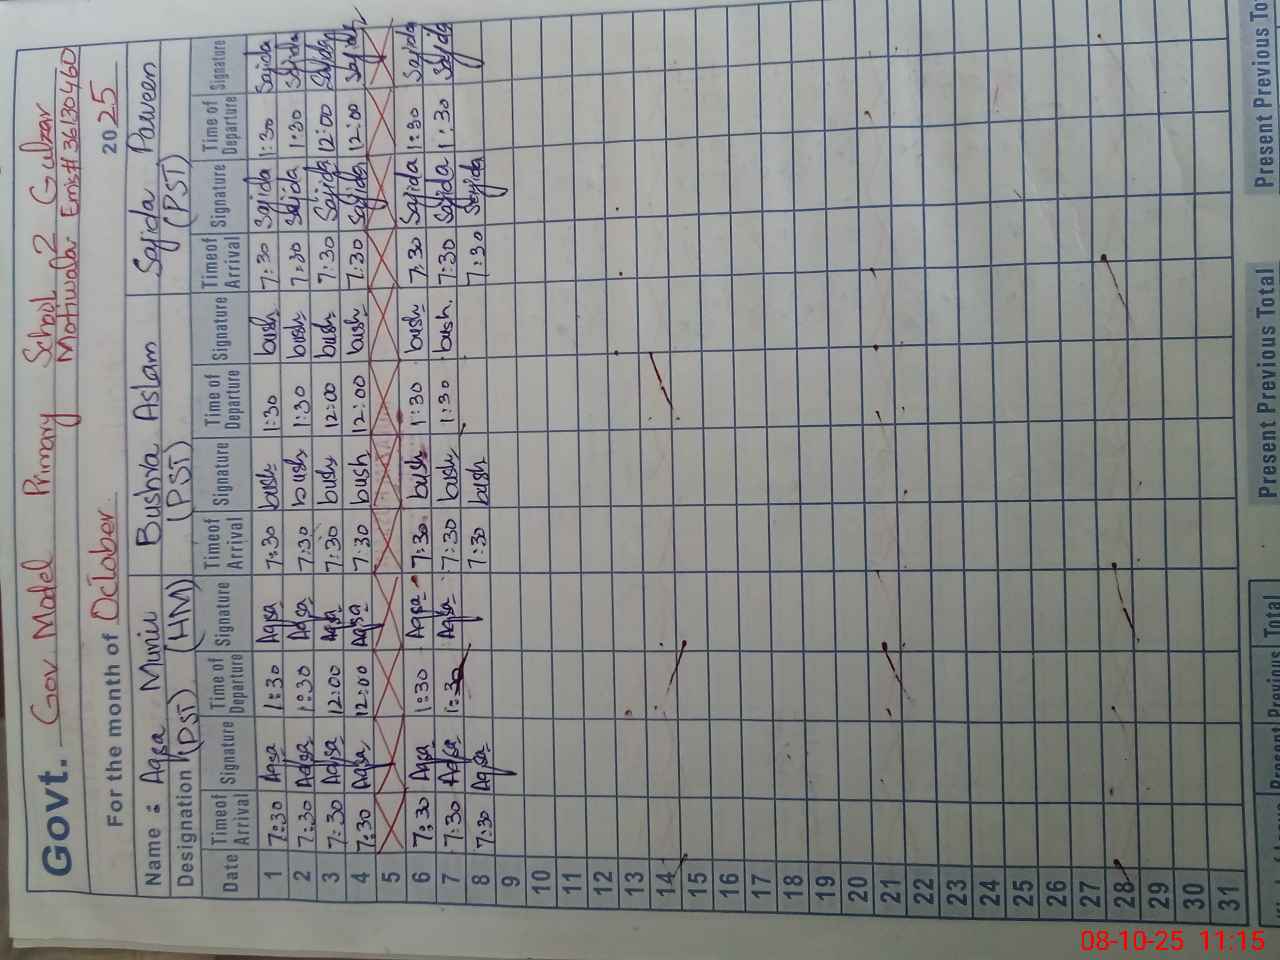 Govt. Gov Model Primary School 2 Gulzar
Motiwala. Emis# 36130460
For the month of October 2025
Name : Aqsa Munir Bushra Aslam Sajida Parveen
Designation (PST) (HM) (PST) (PST)
Date Time of Arrival Signature Time of Departure Signature Time of Arrival Signature Time of Departure Signature Time of Arrival Signature Time of Departure Signature
1 7:30 Aqsa 1:30 Aqsa 7:30 bush 1:30 bush 7:30 Sajida 1:30 Sajida
2 7:30 Aqsa 1:30 Aqsa 7:30 bush 1:30 bush 7:30 Sajida 1:30 Sajida
3 7:30 Aqsa 12:00 Aqsa 7:30 bush 12:00 bush 7:30 Sajida 12:00 Sajida
4 7:30 Aqsa 12:00 Aqsa 7:30 bush 12:00 bush 7:30 Sajida 12:00 Sajida
5
6 7:30 Aqsa 1:30 Aqsa 7:30 bush 1:30 bush 7:30 Sajida 1:30 Sajida
7 7:30 Aqsa 1:30 Aqsa 7:30 bush 1:30 bush 7:30 Sajida 1:30 Sajida
8 7:30 Aqsa 7:30 bush 7:30 Sajida
9
10
11
12
13
14
15
16
17
18
19
20
21
22
23
24
25
26
27
28
29
30
31
Present Previous Total Present Previous Total Present Previous To
08-10-25 11:15